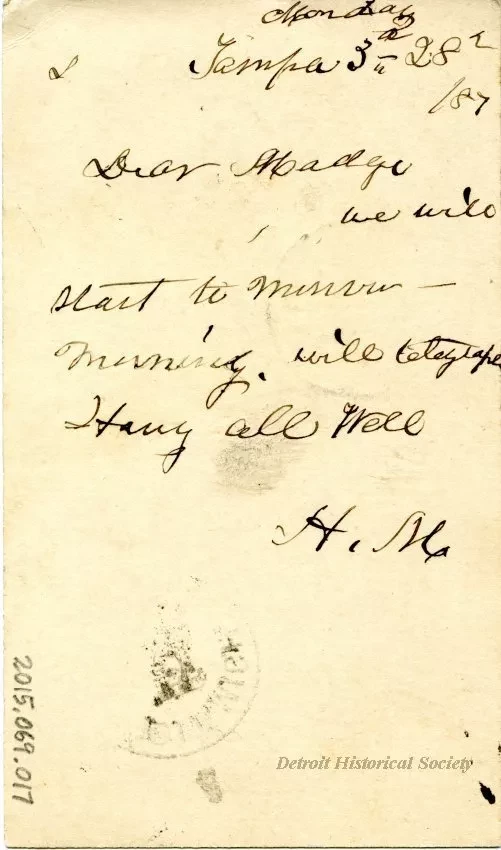 Monday
Tampa 3 28
/87
Dear Madge
we will
start to Morrow -
Morning. will telegraph
Harry all Well
H. M.
2015.069.017
Detroit Historical Society